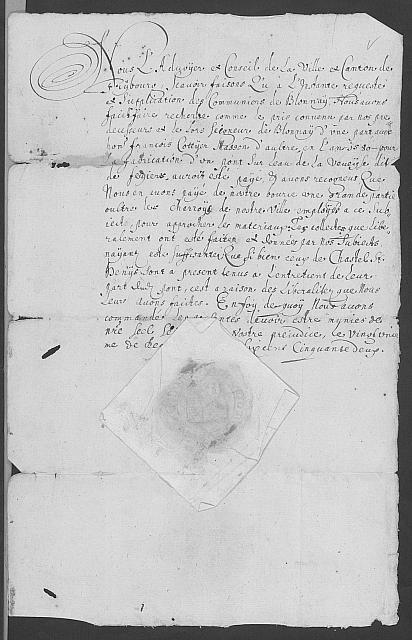 Nous L'Advoyer et Conseil de La Ville et Canton de
Frybourg, scavoir faisons Qu'a L'Instante requeste
et supplication des Communiers de Blonnay, Nous avons
fait faire recherche comme le pris convenu par nos pre
decesseurs et le Sors Seigneur de Blonnay d'une part avec
hon: francois Cottyer Masson d'aultre, en l'an
la fabrication d'un pont sur l'eau de la Veveyse dit
de fegieres, auroit esté payé, et avons recogneut Que
Nous en avons payé de nostre bourse une grande partie
oultre les cherroys de nostre Ville employés a ce sub
iect, pour approcher les materiaux, Les collectes que libe
ralement ont esté faites et données par nos Subiects
nayant esté suffisantes, Que si bien ceux de Chastel St
Denys sont a present tenus a l'entretient de leur
part dud. pont, c'est a raison des liberalités que Nous
leur avons faites. En foy de quoy Nous avons
commandé les presentes devoir estre munies de
nre seel Nostre prejudice, le Vingt
me de Cinquante deux.